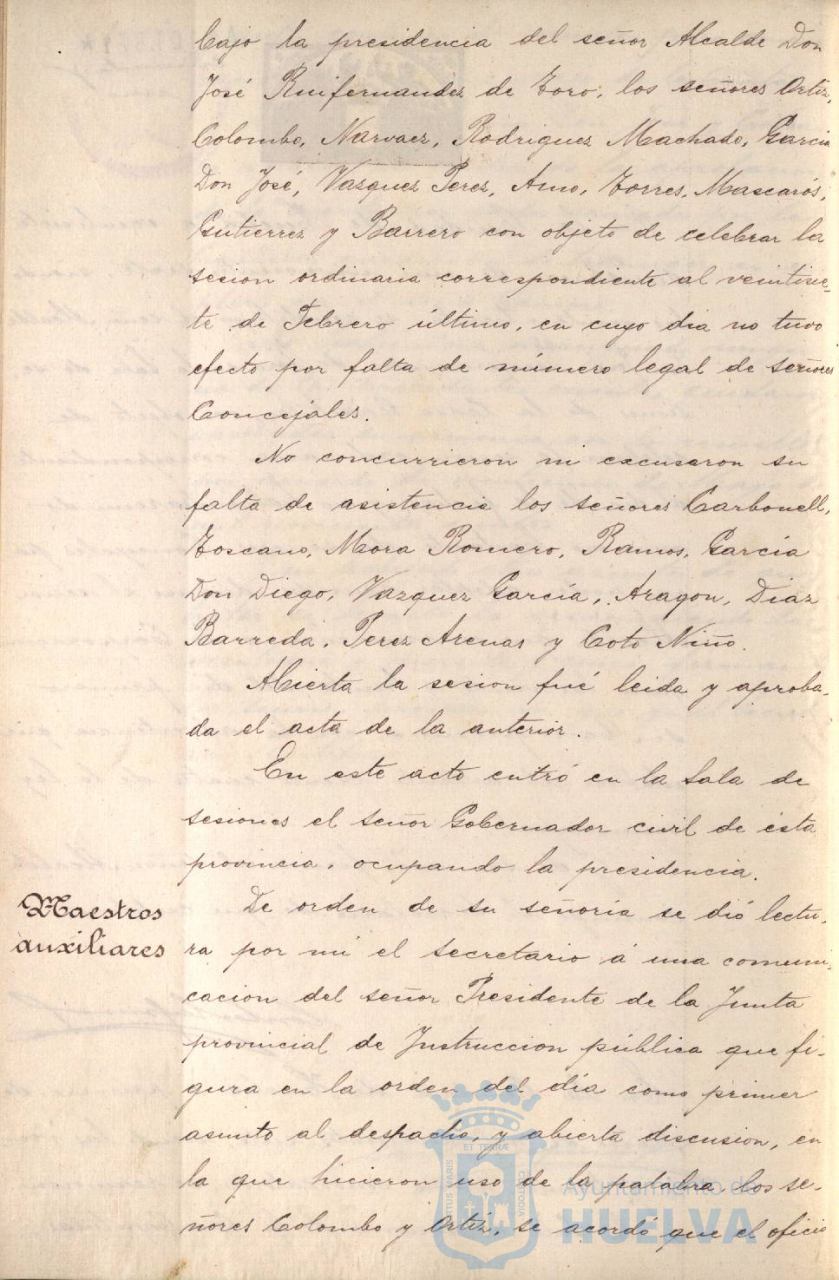 bajo la presidencia del señor Alcalde Don
José Ruifernandez de Toro, los señores Ortiz,
Colombo, Narvaez, Rodriguez Machado, Garcia
Don José, Vazquez Perez, Amo, Torres, Mascarós,
Gutierrez y Barrero con objeto de celebrar la
sesion ordinaria correspondiente al veintisie-
te de Febrero último, en cuyo dia no tuvo
efecto por falta de número legal de señores
Concejales.
No concurrieron ni excusaron su
falta de asistencia los señores Carbonell,
Toscano, Mora Romero, Ramos, García
Don Diego, Vazquez García, Aragon, Diaz
Barreda, Perez Arenas y Coto Niño.
Abierta la sesion fué leida y aproba-
da el acta de la anterior.
En este acto entró en la Sala de
sesiones el señor Gobernador civil de ésta
provincia, ocupando la presidencia.
Maestros
auxiliares
De orden de su señoría se dió lectu-
ra por mi el secretario á una comuni-
cacion del señor Presidente de la Junta
provincial de Instruccion pública que fi-
gura en la orden del dia como primer
asunto al despacho, y abierta discusion, en
la que hicieron uso de la palabra los se-
ñores Colombo y Ortiz, se acordó que el oficio
Ayuntamiento de
HUELVA